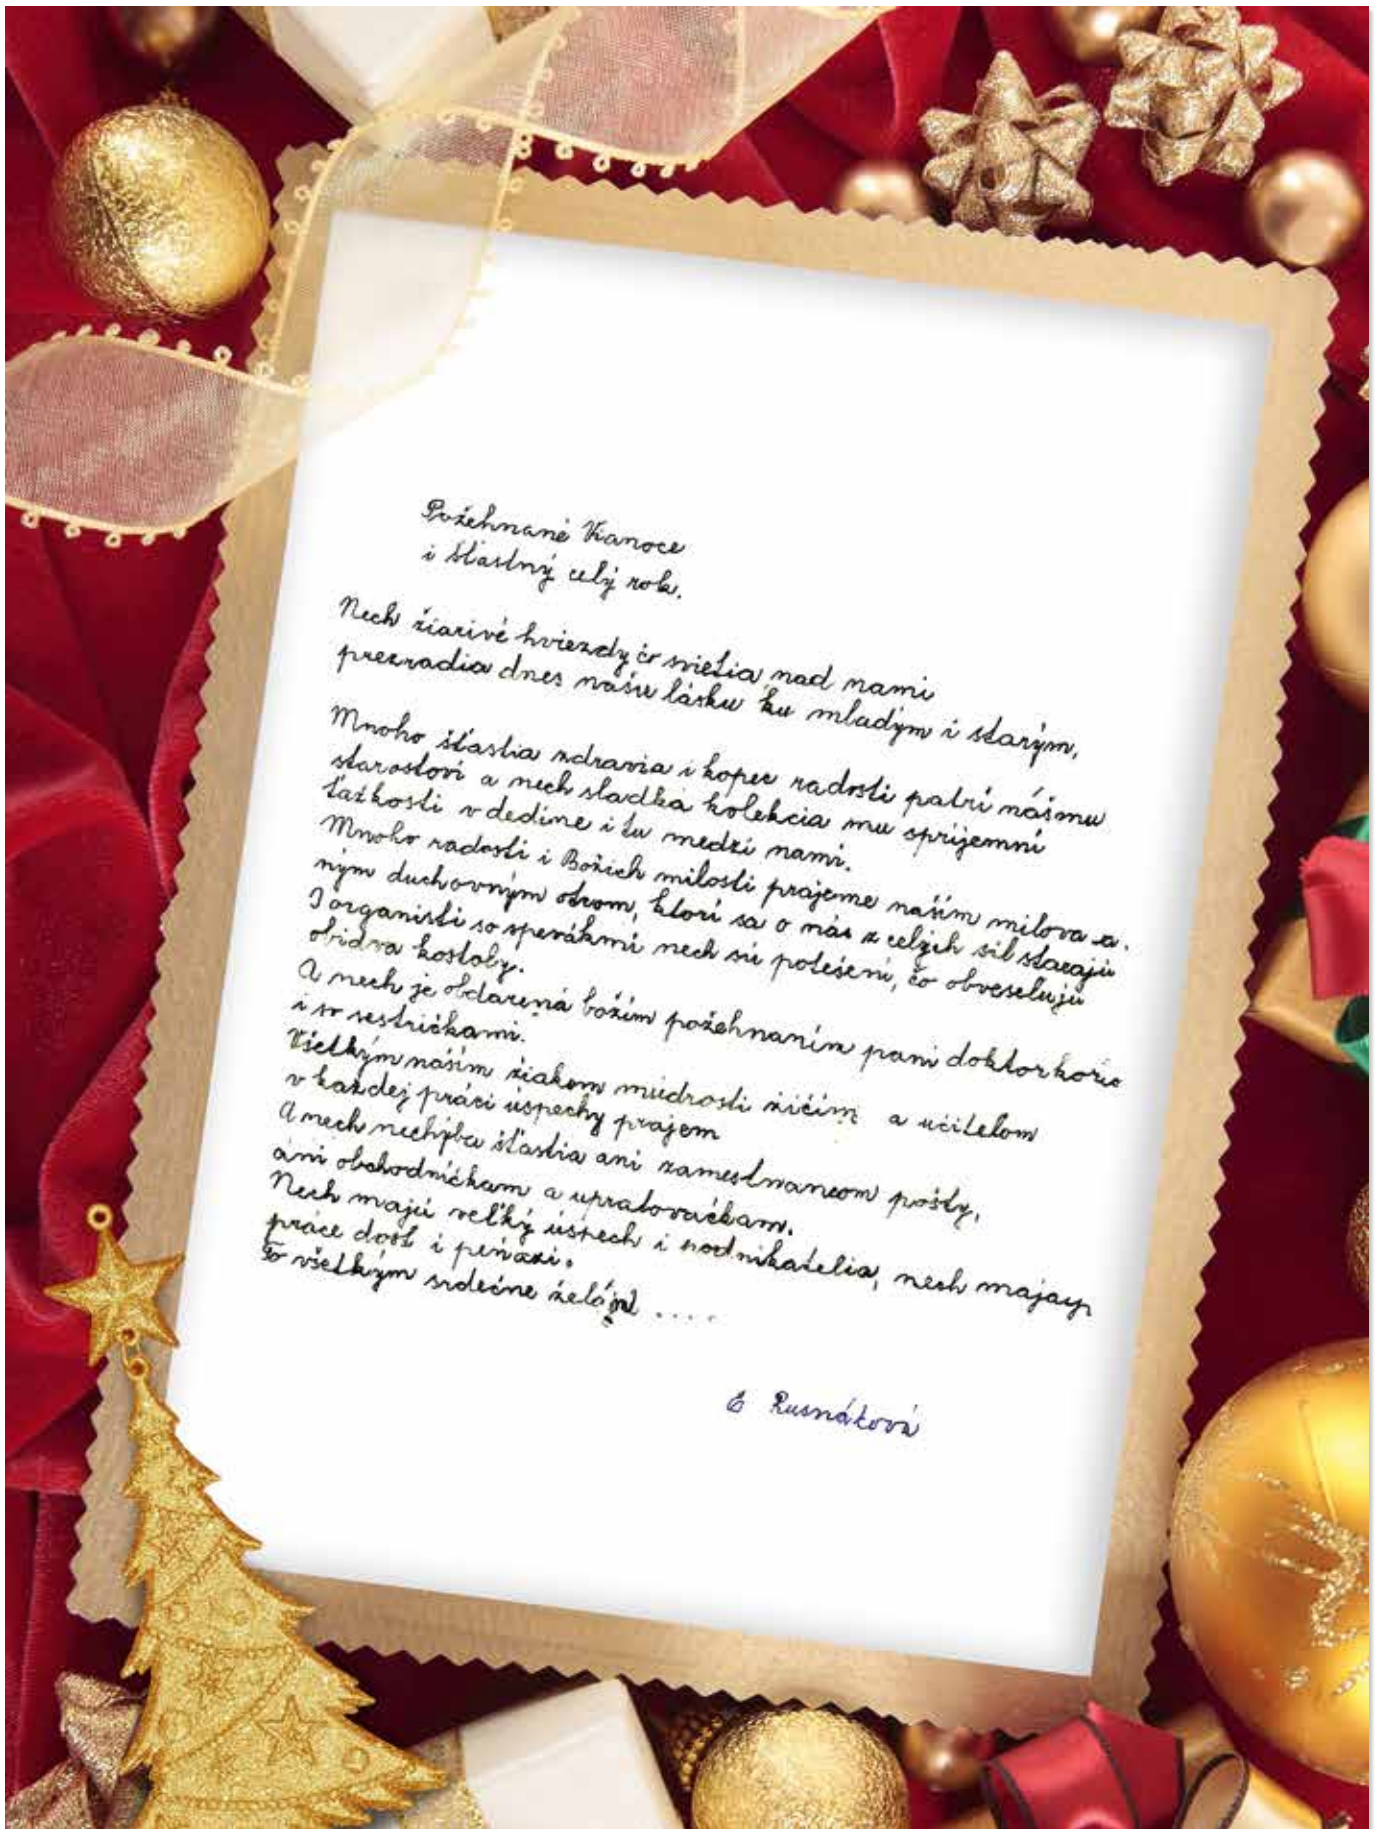 Požehnané Vianoce
i šťastný celý rok.
Nech žiarivé hviezdy čo svietia nad nami
prezradia dnes našu lásku ku mladým i starým,
Mnoho šťastia zdravia i kopec radosti patrí nášmu
starostovi a nech sladká kolekcia mu spríjemní
ťažkosti v dedine i tu medzi nami.
Mnoho radosti i Božích milosti prajeme našim milova a.
ným duchovným otcom, ktorí sa o nás z celých síl starajú
I organisti so spevákmi nech sú potešení, čo obveseľujú
obidva kostoly.
A nech je obdarená božím požehnaním pani doktorko
i so sestričkami.
Všetkým našim žiakom múdrosti žičím a učitelom
v každej práci úspechy prajem
A nech nechýba šťastia ani zamestnancom pošty,
ani obchodníčkam a upratovačkam.
Nech majú veľký úspech i podnikatelia, nech majú
práce dosť i peňazí.
To všetkým srdečne želá ....
E Rusnáková